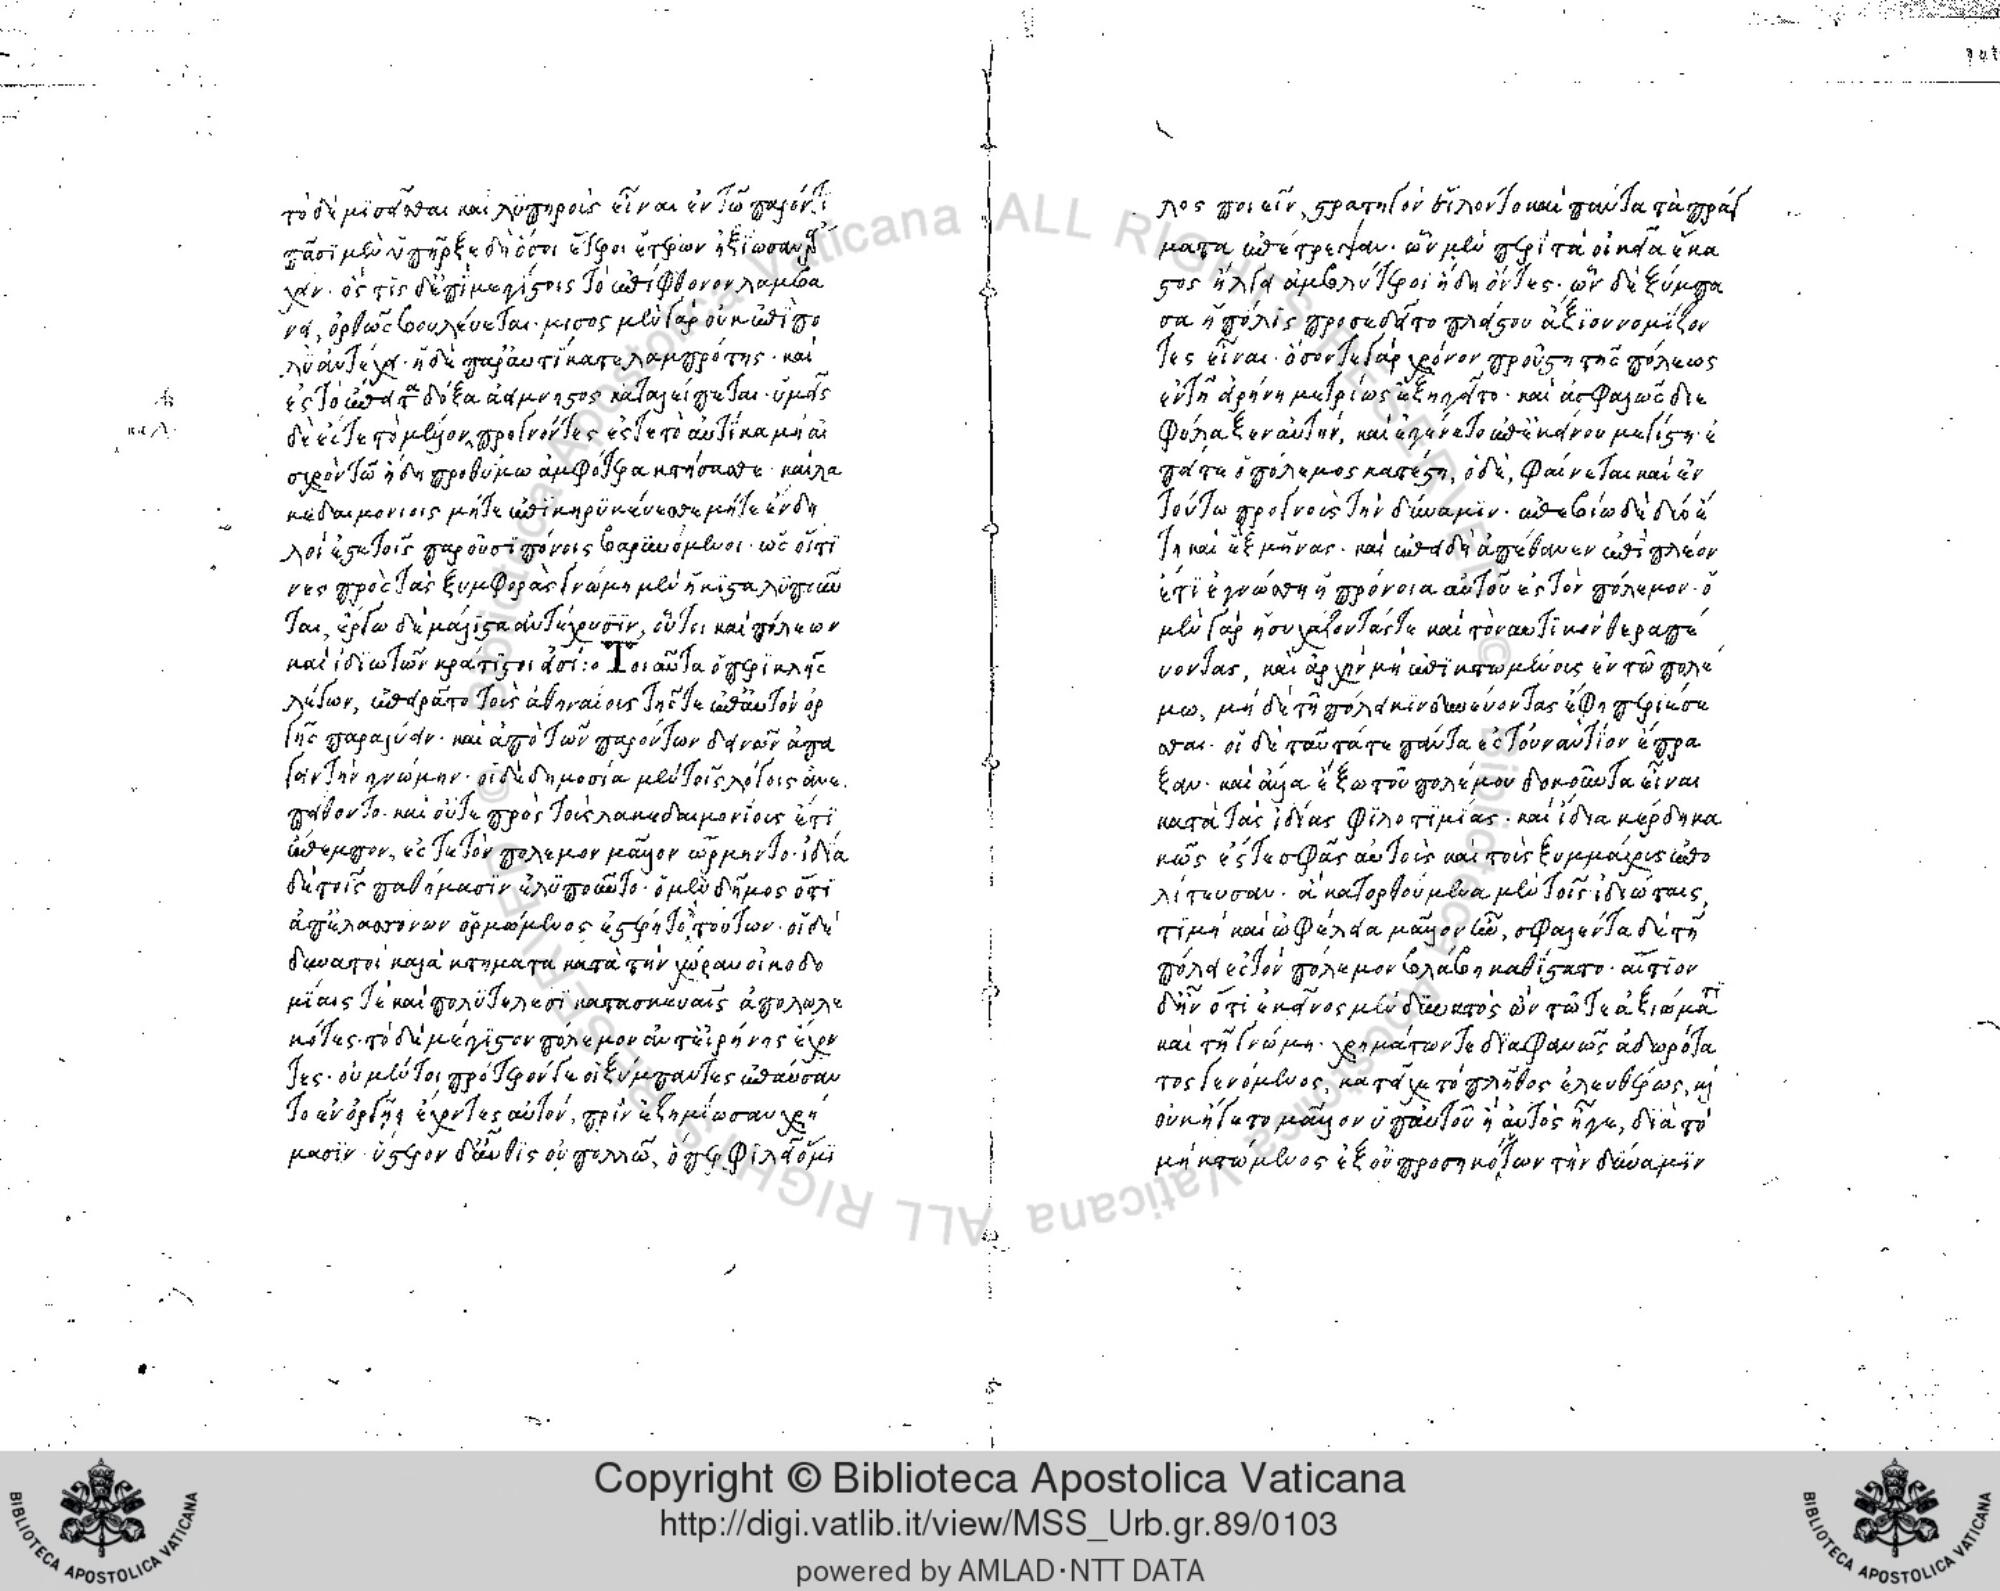 τὸ δὲ μισεῖσθαι καὶ λυπηροὺς εἶναι ἐν τῶ παρόντι
πᾶσι μὲν ὑπῆρξε δὴ ὅσοι ἕτεροι ἑτέρων ἠξίωσαν ἄρ
χειν· ὅς τις δ' ἐπὶ μεγίστοις τὸ ἐπίφθονον λαμβά
νει, ὀρθῶς βουλεύεται· μῖσος μὲν γὰρ οὐκ ἐπὶ πο
λὺ ἀντέχει· ἡ δὲ παραυτίκα τε λαμπρότης· καὶ
ἐς τὸ ἔπειτα δόξα ἀείμνηστος καταλείπεται· ὑμεῖς
δὲ ἔς τε τὸ μέλλον προγνόντες ἔς τε τὸ αὐτίκα μὴ αἰ
σχρὸν τῶ ἤδη προθύμω ἀμφότερα κτήσασθε· καὶ λα
κεδαιμονίοις μήτε ἐπικηρυκεύεσθε μήτε ἔνδη
λοι ἔστε τοῖς παροῦσι πόνοις βαρυνόμενοι· ὡς οἵτι
νες πρὸς τὰς ξυμφορὰς γνώμη μὲν ἥκιστα λυποῦν
ται, ἔργω δὲ μάλιστα ἀντέχουσιν, οὗτοι καὶ πόλεων
καὶ ἰδιωτῶν κράτιστοί εἰσι:ο Τοιαῦτα ὁ περικλῆς
λέγων, ἐπειρᾶτο τοὺς ἀθηναίους τῆς τε ἐπ' αὐτὸν ὀρ
γῆς παραλύειν· καὶ ἀπὸ τῶν παρόντων δεινῶν ἀπά
γειν τὴν γνώμην· οἱ δὲ δημοσία μὲν τοῖς λόγοις ἀνε
πείθοντο· καὶ οὔτε πρὸς τοὺς λακεδαιμονίους ἔτι
ἔπεμπον, ἔς τε τὸν πόλεμον μᾶλλον ὥρμηντο· ἰδία
δὲ τοῖς παθήμασιν ἐλυποῦντο· ὁ μὲν δῆμος ὅτι
ἀπ' ἐλασσόνων ὁρμώμενος ἐστέρητο τούτων· οἱ δὲ
δυνατοὶ καλὰ κτήματα κατὰ τὴν χώραν οἰκοδο
μίαις τε καὶ πολυτελέσι κατασκευαῖς ἀπολωλε
κότες· τὸ δὲ μέγιστον πόλεμον ἀντ' εἰρήνης ἔχον
τες· οὐ μέντοι πρότερόν γε οἱ ξύμπαντες ἐπαύσαν
το ἐν ὀργῆ ἔχοντες αὐτόν, πρὶν ἐζημίωσαν χρή
μασιν· ὕστερον δ' αὖθις οὐ πολλῶ, ὅπερ φιλεῖ ὅμι
λος ποιεῖν, στρατηγὸν εἵλοντο καὶ πάντα τὰ πράγ
ματα ἐπέτρεψαν· ὧν μὲν περὶ τὰ οἰκεῖα ἕκα
στος ἤλγει ἀμβλύτεροι ἤδη ὄντες· ὧν δὲ ξύμπα
σα ἡ πόλις προσεδεῖτο πλείστου ἄξιον νομίζον
τες εἶναι· ὅσον τε γὰρ χρόνον προὔστη τῆς πόλεως
ἐν τῆ εἰρήνη μετρίως ἐξηγεῖτο· καὶ ἀσφαλῶς διε
φύλαξεν αὐτήν, καὶ ἐγένετο ἐπ' ἐκείνου μεγίστη· ἐ
πεί τε ὁ πόλεμος κατέστη, ὁ δὲ, φαίνεται καὶ ἐν
τούτω προγνοὺς τὴν δύναμιν· ἐπεβίω δὲ δύο ἔ
τη καὶ ἓξ μῆνας· καὶ ἐπειδὴ ἀπέθανεν ἐπὶ πλέον
ἔτι ἐγνώσθη ἡ πρόνοια αὐτοῦ ἐς τὸν πόλεμον· ὁ
μὲν γὰρ ἡσυχάζοντάς τε καὶ τὸ ναυτικὸν θεραπεύ
οντας, καὶ ἀρχὴν μὴ ἐπικτωμένους ἐν τῶ πολέ
μω, μηδὲ τῆ πόλει κινδυνεύοντας ἔφη περιέσε
σθαι· οἱ δὲ ταῦτά τε πάντα ἐς τοὐναντίον ἔπρα
ξαν· καὶ ἄλλα ἔξω τοῦ πολέμου δοκοῦντα εἶναι
κατὰ τὰς ἰδίας φιλοτιμίας· καὶ ἴδια κέρδη κα
κῶς ἔς τε σφᾶς αὐτοὺς καὶ τοὺς ξυμμάχους ἐπο
λίτευσαν· ἃ κατορθούμενα μὲν τοῖς ἰδιώταις
τιμὴ καὶ ὠφέλεια μᾶλλον ἦν, σφαλέντα δὲ τῆ
πόλει ἐς τὸν πόλεμον βλάβη καθίστατο· αἴτιον
δ' ἦν ὅτι ἐκεῖνος μὲν δυνατὸς ὢν τῶ τε ἀξιώματι
καὶ τῆ γνώμη· χρημάτων τε διαφανῶς ἀδωρότα
τος γενόμενος, κατεῖχε τὸ πλῆθος ἐλευθέρως, καὶ
οὐκ ἤγετο μᾶλλον ὑπ' αὐτοῦ ἢ αὐτὸς ἦγε, διὰ τὸ
μὴ κτώμενος ἐξ οὐ προσηκόντων τὴν δύναμιν